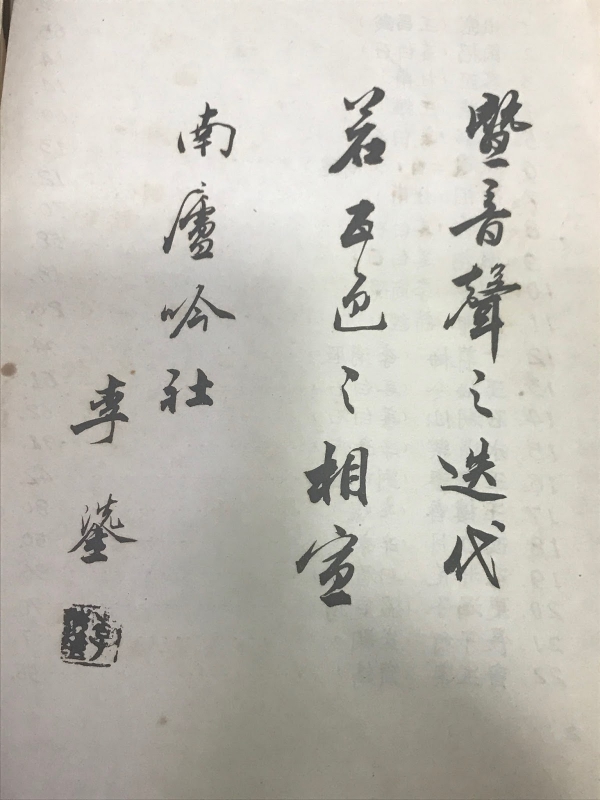 暨音聲之迭代
若五色之相宣
南廬吟社
李